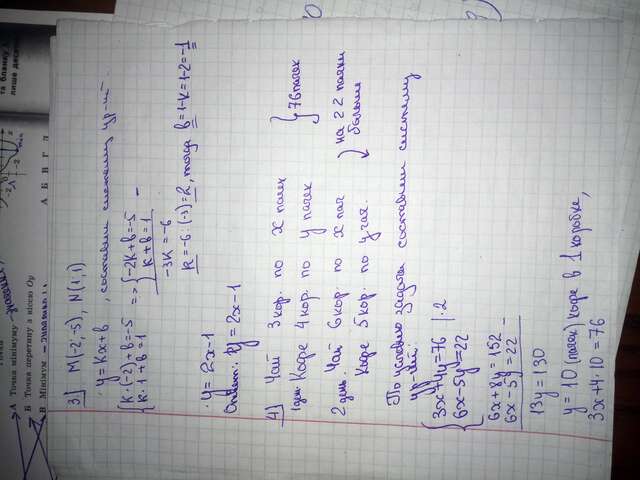 3] M(-2;-5), N(1;1)
y=Kx+b, составим систему ур-ий
{K·(-2)+b=-5
K·1+b=1
=> {-2K+b=-5
K+b=1 -
-3K=-6
K=-6:(-3)=2, тогда b=1-K=1-2=-1
y=2x-1
Ответ: y=2x-1
4] Чай 3 кор. по x пачек
1 день Кофе 4 кор. по y пачек } 76 пачек
2 день. Чай 6 кор. по x пач
Кофе 5 кор. по y пач. на 22 пачки больше
По условию задачи составим систему
ур-ий:
{3x+4y=76 |·2
6x-5y=22
6x+8y=152
6x-5y=22 -
13y=130
y=10 (пачек) кофе в 1 коробке,
3x+4·10=76
А Точка мінімуму
Б Точка перетину з віссю Oy
В Мінімум
А Б В Г Д